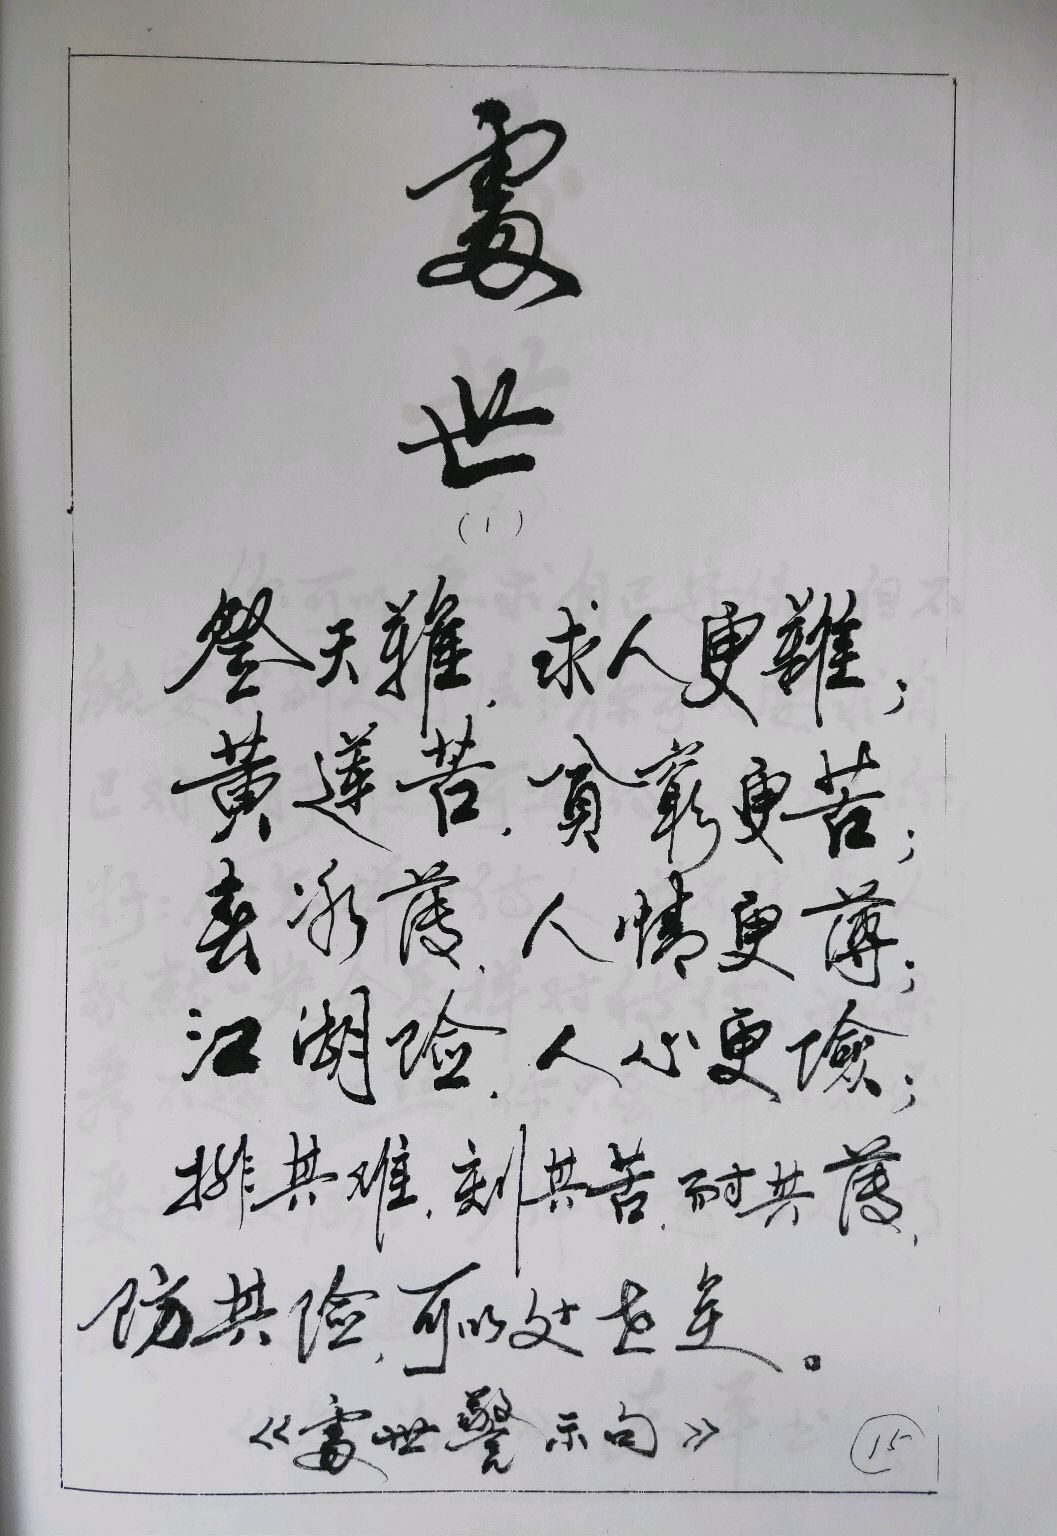 處
世
(1)
登天難,求人更難;
黃蓮苦,貧窮更苦;
春冰薄,人情更薄;
江湖险,人心更險;
排其难,刻其苦,耐其薄,
防其险,可以处世矣。
《處世警示句》
15